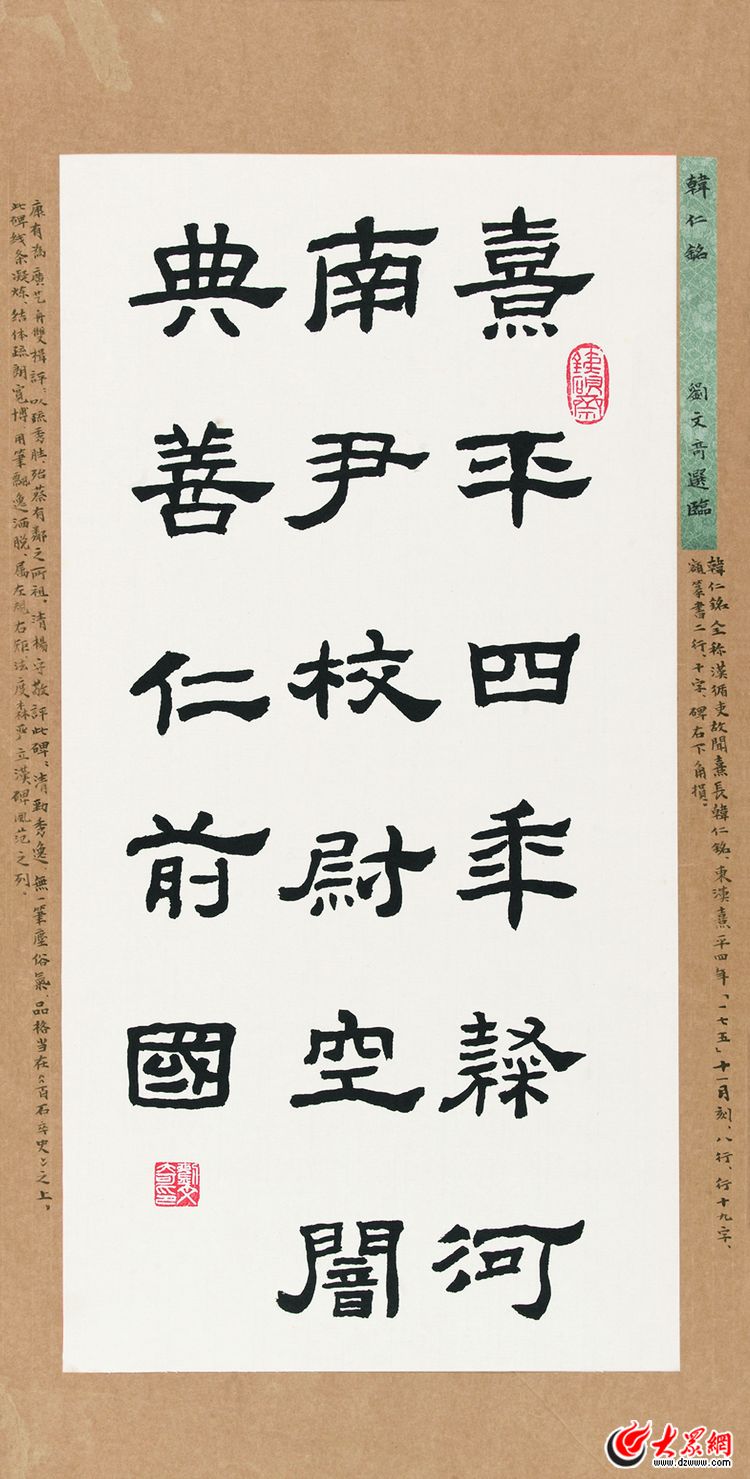 韓仁銘 劉文竒選臨
韓仁銘全称漢循吏故聞熹長韓仁銘、東漢熹平四年「一七五」十一月刻、八行、行十九字、
額篆書二行、十字、碑右下角損。
熹平四年河
南尹校尉空闇
典善仁前國
康有為廣艺舟雙楫評：以疏秀勝、殆蔡有鄰之所祖。清楊守敬評此碑：清勁秀逸、無一筆塵俗氣、品格当在《百石卒史》之上。
此碑线条凝炼、结体疏朗寬博、用筆飘逸洒脱、属左规右矩法度森严立漢碑風范之列。
大眾網
www.dzwww.com